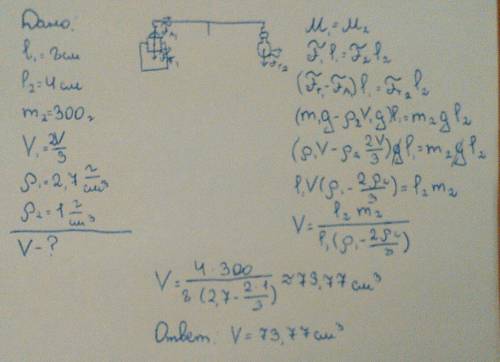 Дано:
l₁=8см
l₂=4см
m₂=300г
V₁=2V/3
ρ₁=2,7 г/см³
ρ₂=1 г/см³
V-?
M₁=M₂
F₁l₁=F₂l₂
(Fт₁-FА)l₁=Fт₂l₂
(m₁g-ρ₂V₁g)l₁=m₂gl₂
(ρ₁V-ρ₂ 2V/3)gl₁=m₂gl₂
l₁V(ρ₁-2ρ₂/3)=l₂m₂
V=l₂m₂/l₁(ρ₁-2ρ₂/3)
V=4·300/8(2,7-2·1/3)≈73,77см³
Ответ: V=73,77см³